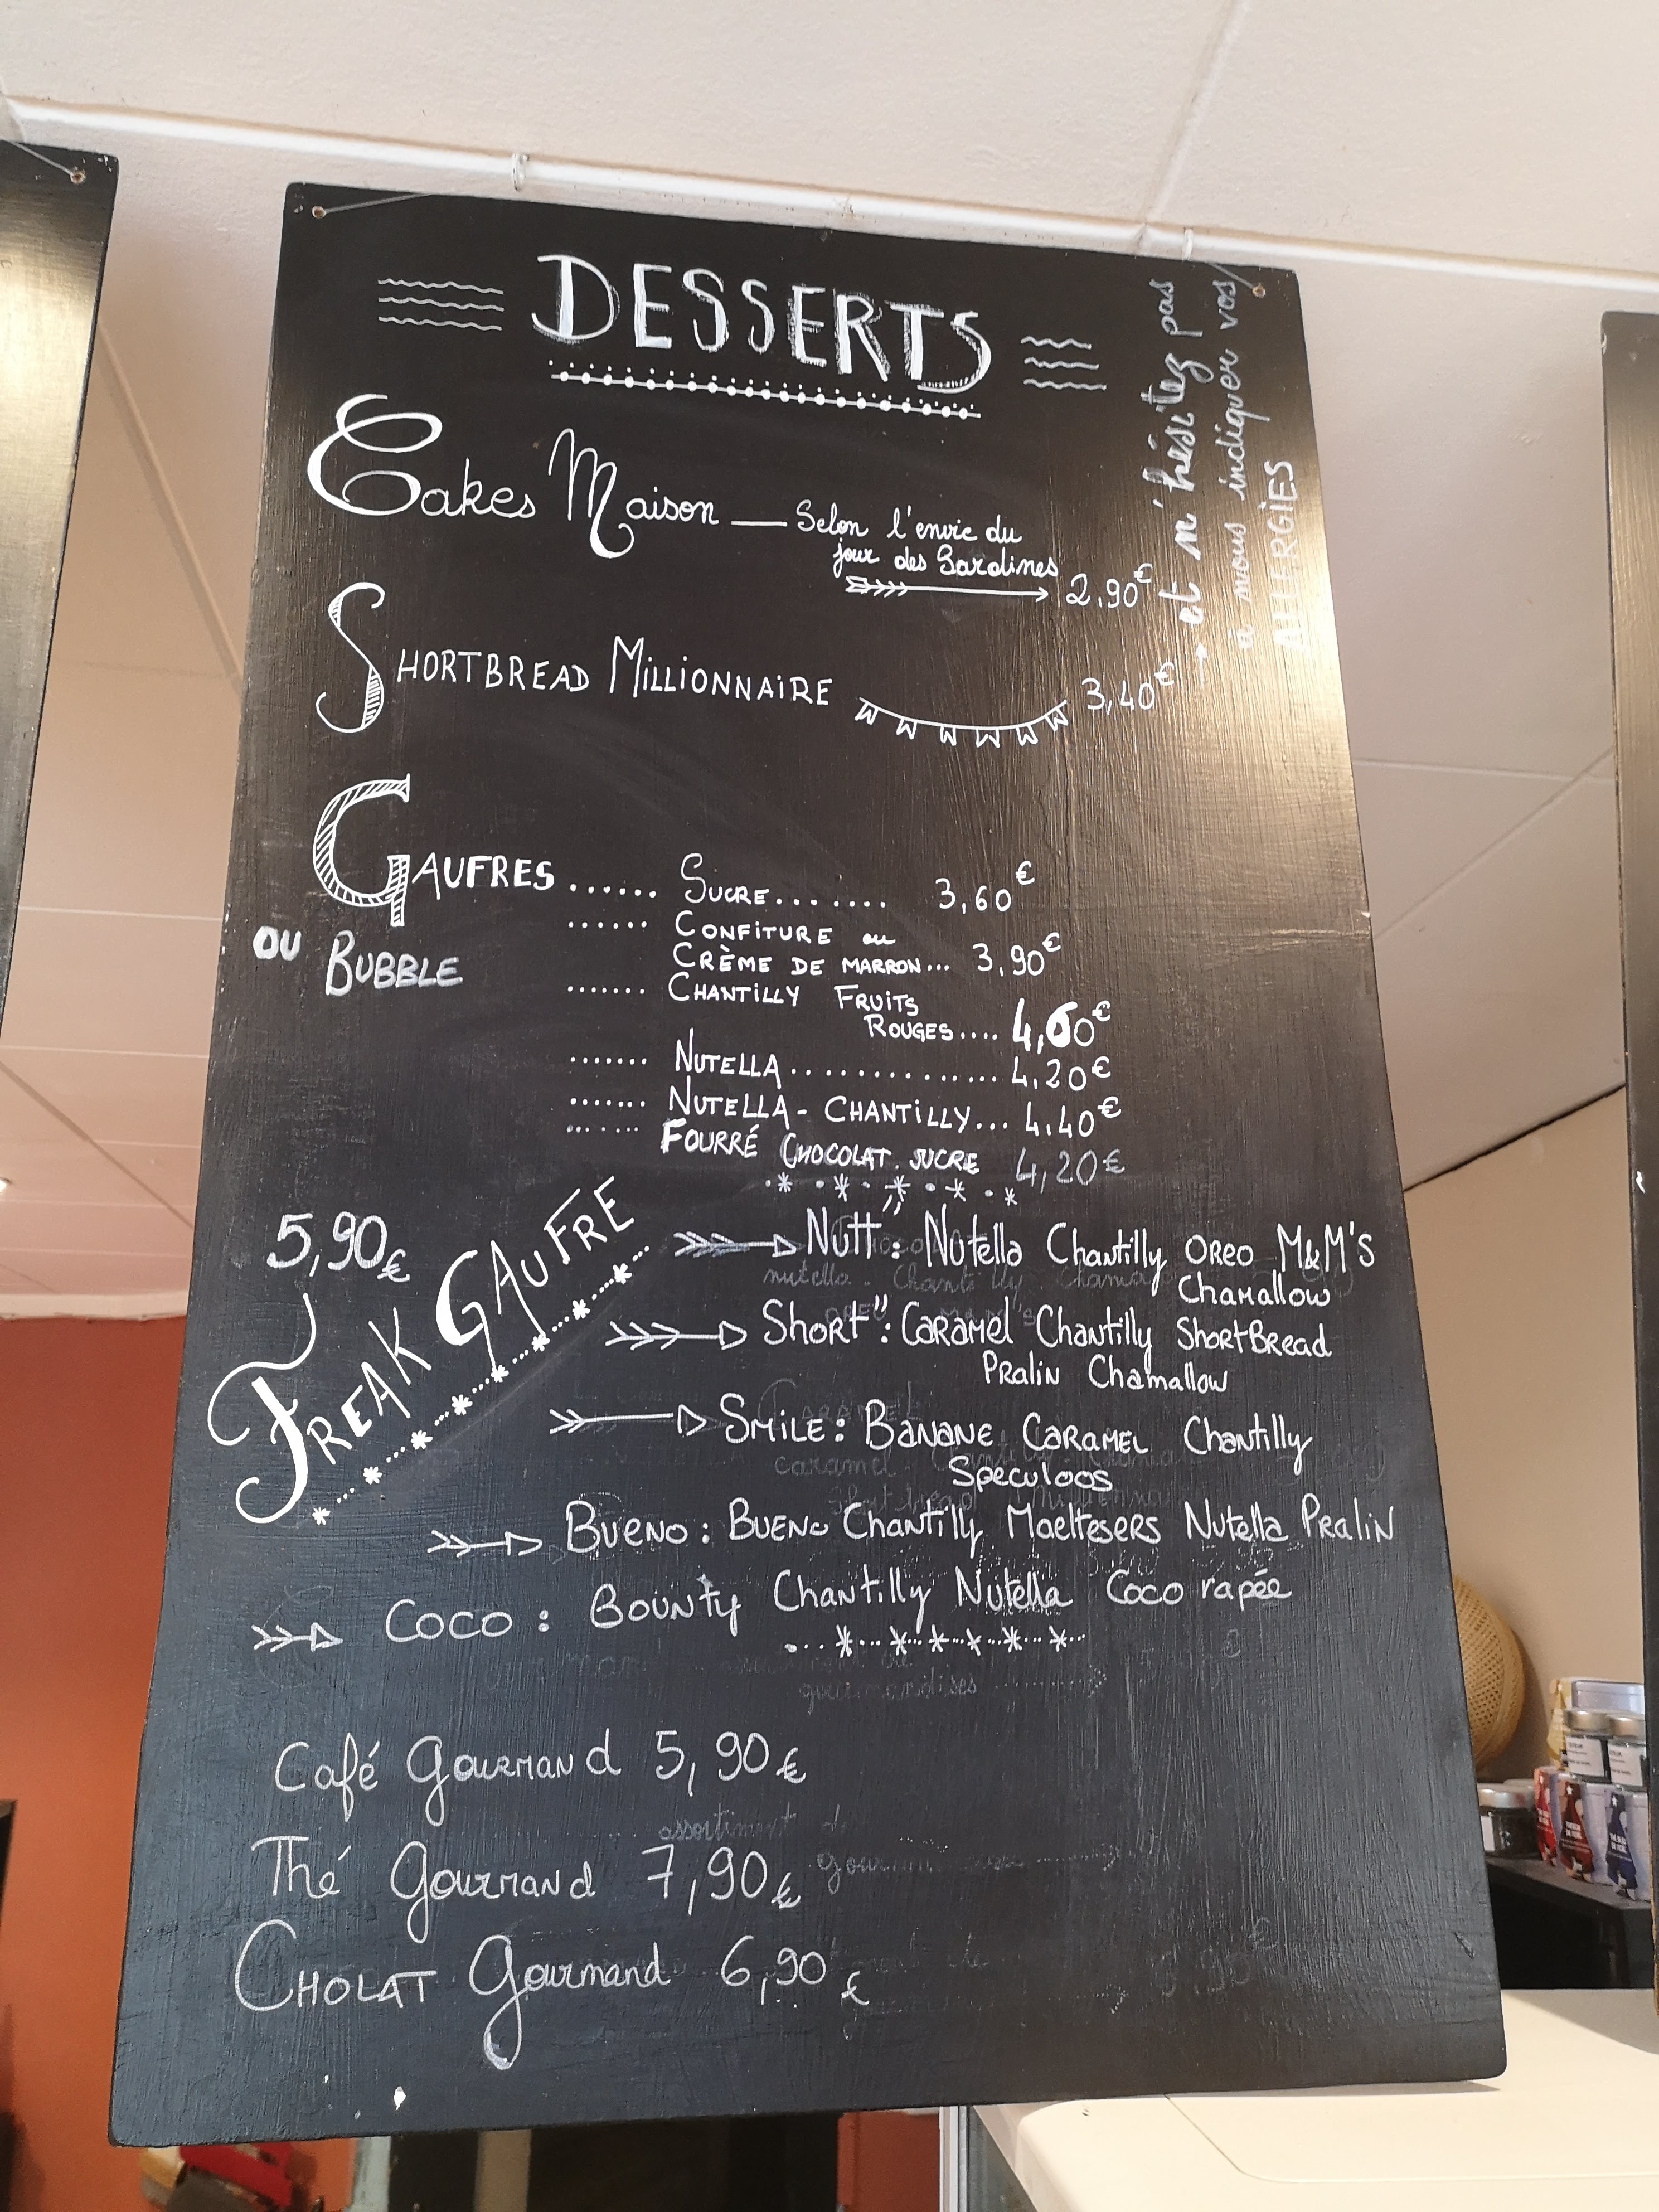 DESSERTS
Cakes Maison — Selon l'envie du
jour des Sardines
2,90€
SHORTBREAD MILLIONNAIRE 3,40€
→ et n'hésitez pas
à nous indiquer vos
ALLERGIES
GAUFRES ...... SUCRE........ 3,60€
OU BUBBLE
...... CONFITURE ou
CRÈME DE MARRON... 3,90€
....... CHANTILLY FRUITS
ROUGES.... 4,60€
....... NUTELLA............... 4,20€
....... NUTELLA - CHANTILLY... 4,40€
....... FOURRÉ CHOCOLAT. SUCRE 4,20€
5,90€
FREAK GAUFRE
Nutt": Nutella Chantilly OREO M&M'S
Chamallow
Short": CARAMEL Chantilly ShortBread
PRALIN Chamallow
SMILE: BANANE CARAMEL Chantilly
Speculoos
BUENO: BUENO Chantilly Maeltesers Nutella PRALIN
COCO: BOUNTY Chantilly Nutella Coco rapée
gourmandises
Café Gourmand 5,90€
assortiment
Thé Gourmand 7,90€
CHOLAT Gourmand 6,90€